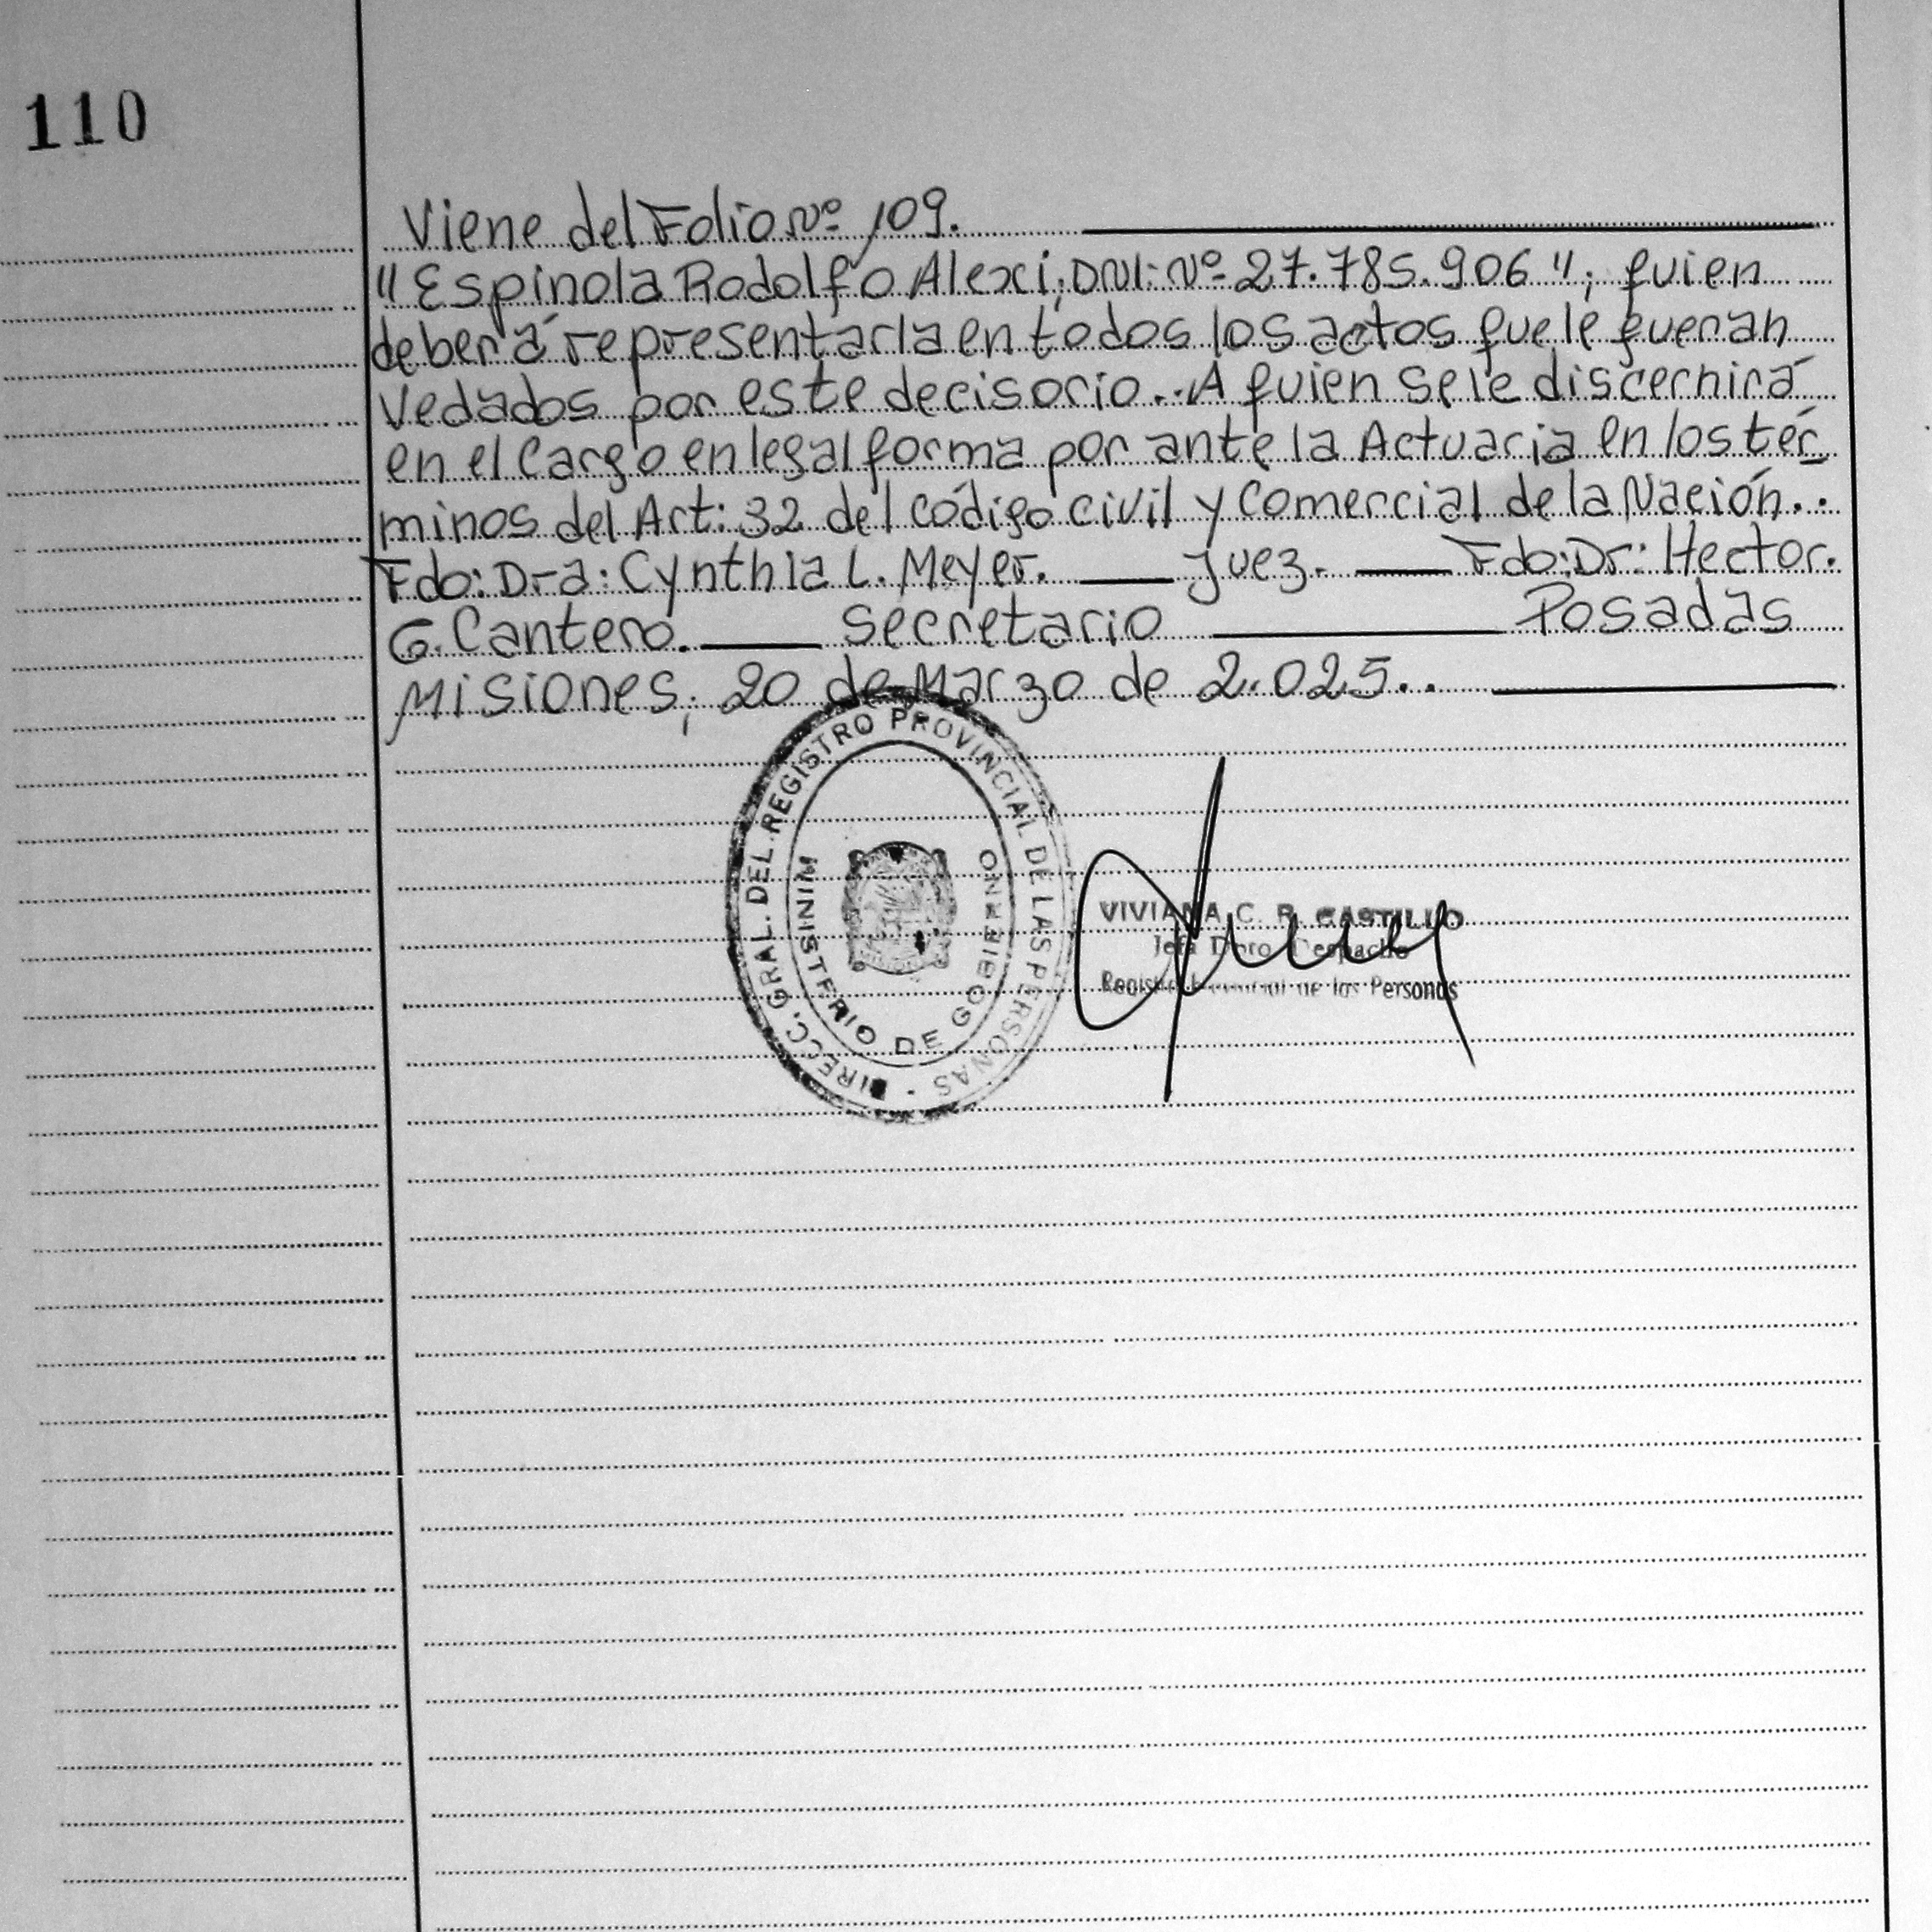 110
Viene del Folio Nº 109.
"Espínola Rodolfo Alexi; DNI: Nº 27.785.906"; quien
deberá representarla en todos los actos que le fueran
vedados por este decisorio.. A quien se le discernirá
en el Cargo en legal forma por ante la Actuaria en los tér
minos del Art: 32 del código civil y Comercial de la Nación..
Fdo: Dra: Cynthia L. Meyer. — Juez. — Fdo: Dr: Hector.
G. Cantero. — secretario — Posadas
Misiones; 20 de Marzo de 2.025..
DIRECC. GRAL. DEL REGISTRO PROVINCIAL DE LAS PERSONAS -
MINISTERIO DE GOBIERNO
VIVIANA C. R. CASTILLO
Jefa Dpro Despacho
Registro Provincial de las Personas